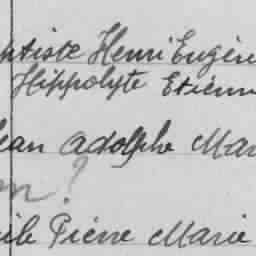 ptiste Henri Eugèn
Hippolyte Etienn
ean Adolphe Mar
on ?
ile Pierre Marie